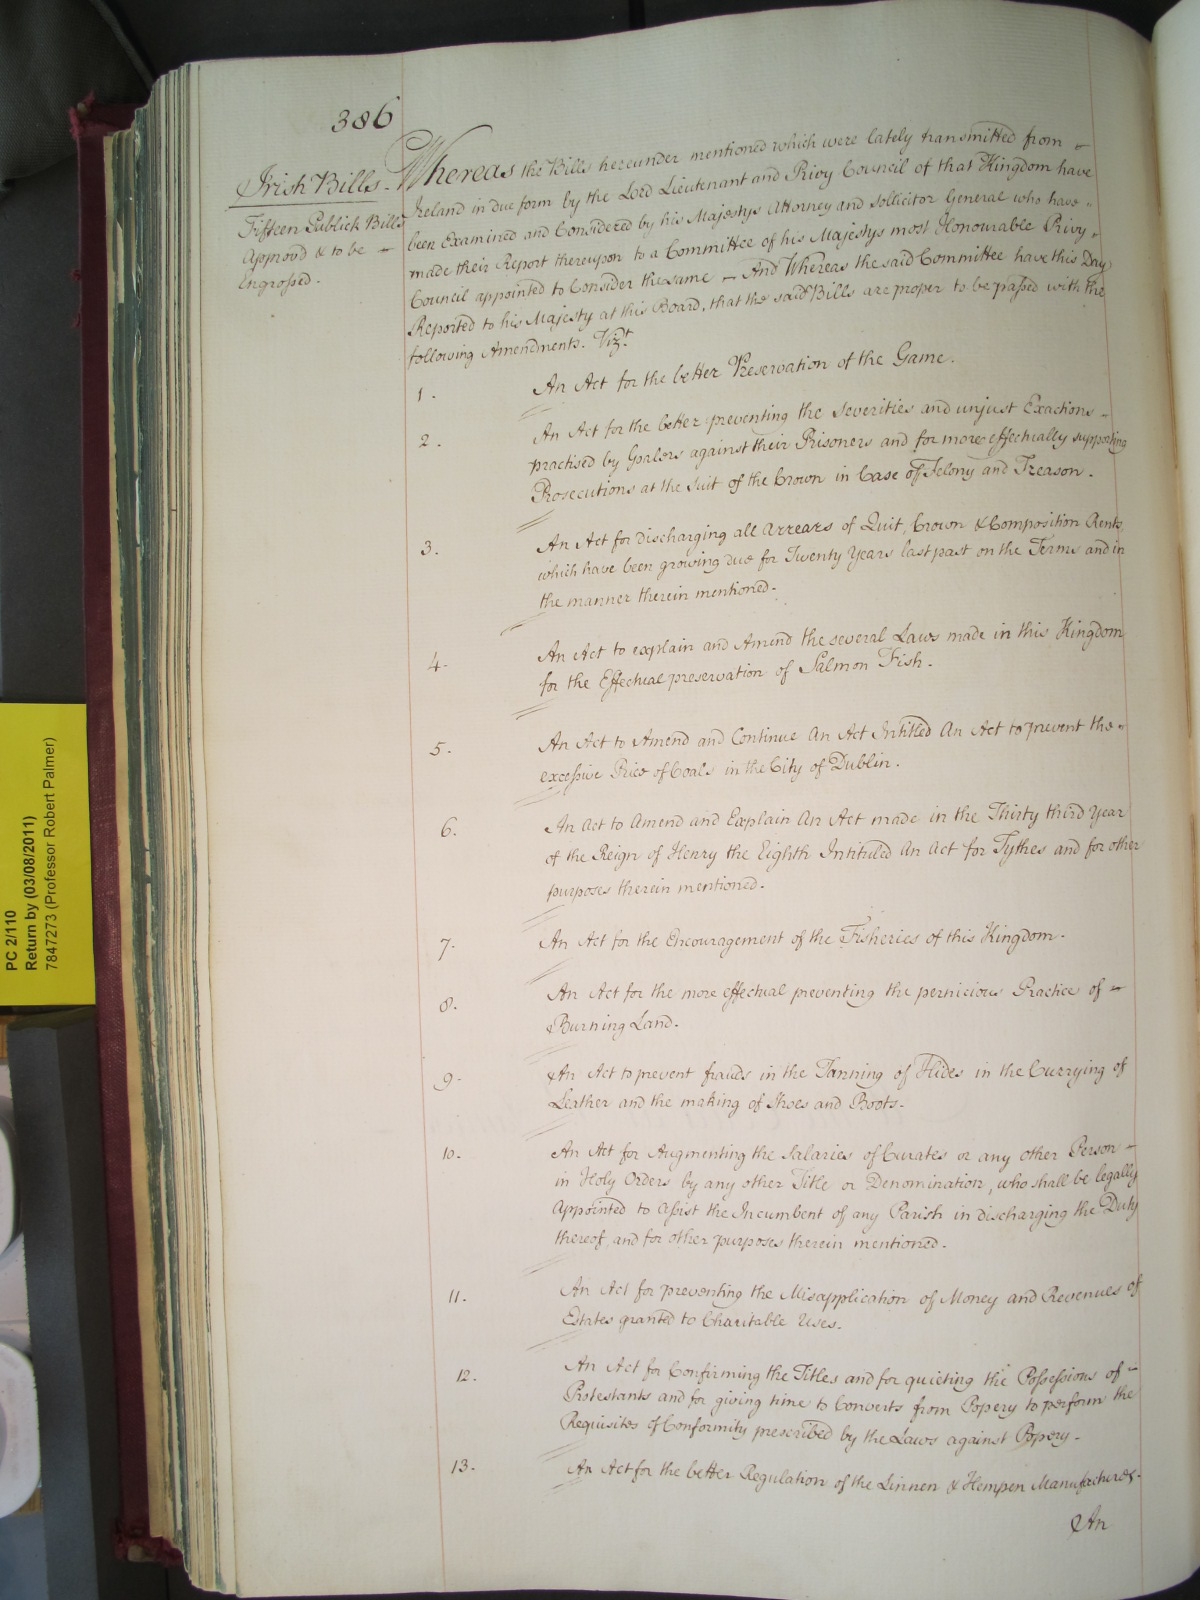 386
Irish Bills.
Fifteen Publick Bills
Approv'd & to be
Engrossed.
Whereas the Bills hereunder mentioned which were lately transmitted from
Ireland in due form by the Lord Lieutenant and Privy Council of that Kingdom have
been Examined and Considered by his Majestys Attorney and Sollicitor General who have
made their Report thereupon to a Committee of his Majestys most Honourable Privy
Council appointed to Consider the same — And Whereas the said Committee have this Day
Reported to his Majesty at this Board, that the said Bills are proper to be passed with the
following Amendments. Vizt.
1. An Act for the better Preservation of the Game.
2. An Act for the better preventing the Severities and unjust Exactions
practised by Goalers against their Prisoners and for more effectually supporting
Prosecutions at the Suit of the Crown in Case of Felony and Treason.
3. An Act for discharging all Arrears of Quit, Crown & Composition Rents
which have been growing due for Twenty Years last past on the Terms and in
the manner therein mentioned.
4. An Act to explain and Amend the several Laws made in this Kingdom
for the Effectual preservation of Salmon Fish.
5. An Act to Amend and Continue An Act Intitled An Act to prevent the
excessive Price of Coals in the City of Dublin.
6. An Act to Amend and Explain An Act made in the Thirty third Year
of the Reign of Henry the Eighth Intituled An Act for Tythes and for other
purposes therein mentioned.
7. An Act for the Encouragement of the Fisheries of this Kingdom.
8. An Act for the more effectual preventing the pernicious Practice of
Burning Land.
9. An Act to prevent frauds in the Tanning of Hides in the Currying of
Leather and the making of Shoes and Boots.
10. An Act for Augmenting the Salaries of Curates or any other Person
in Holy Orders by any other Title or Denomination, who shall be legally
Appointed to assist the Incumbent of any Parish in discharging the Duty
thereof, and for other purposes therein mentioned.
11. An Act for preventing the Misapplication of Money and Revenues of
Estates granted to Charitable Uses.
12. An Act for Confirming the Titles and for quieting the Possessions of
Protestants and for giving time to Converts from Popery to perform the
Requisites of Conformity prescribed by the Laws against Popery.
13. An Act for the better Regulation of the Linnen & Hempen Manufactures.
An
PC 2/110
Return by (03/08/2011)
7847273 (Professor Robert Palmer)